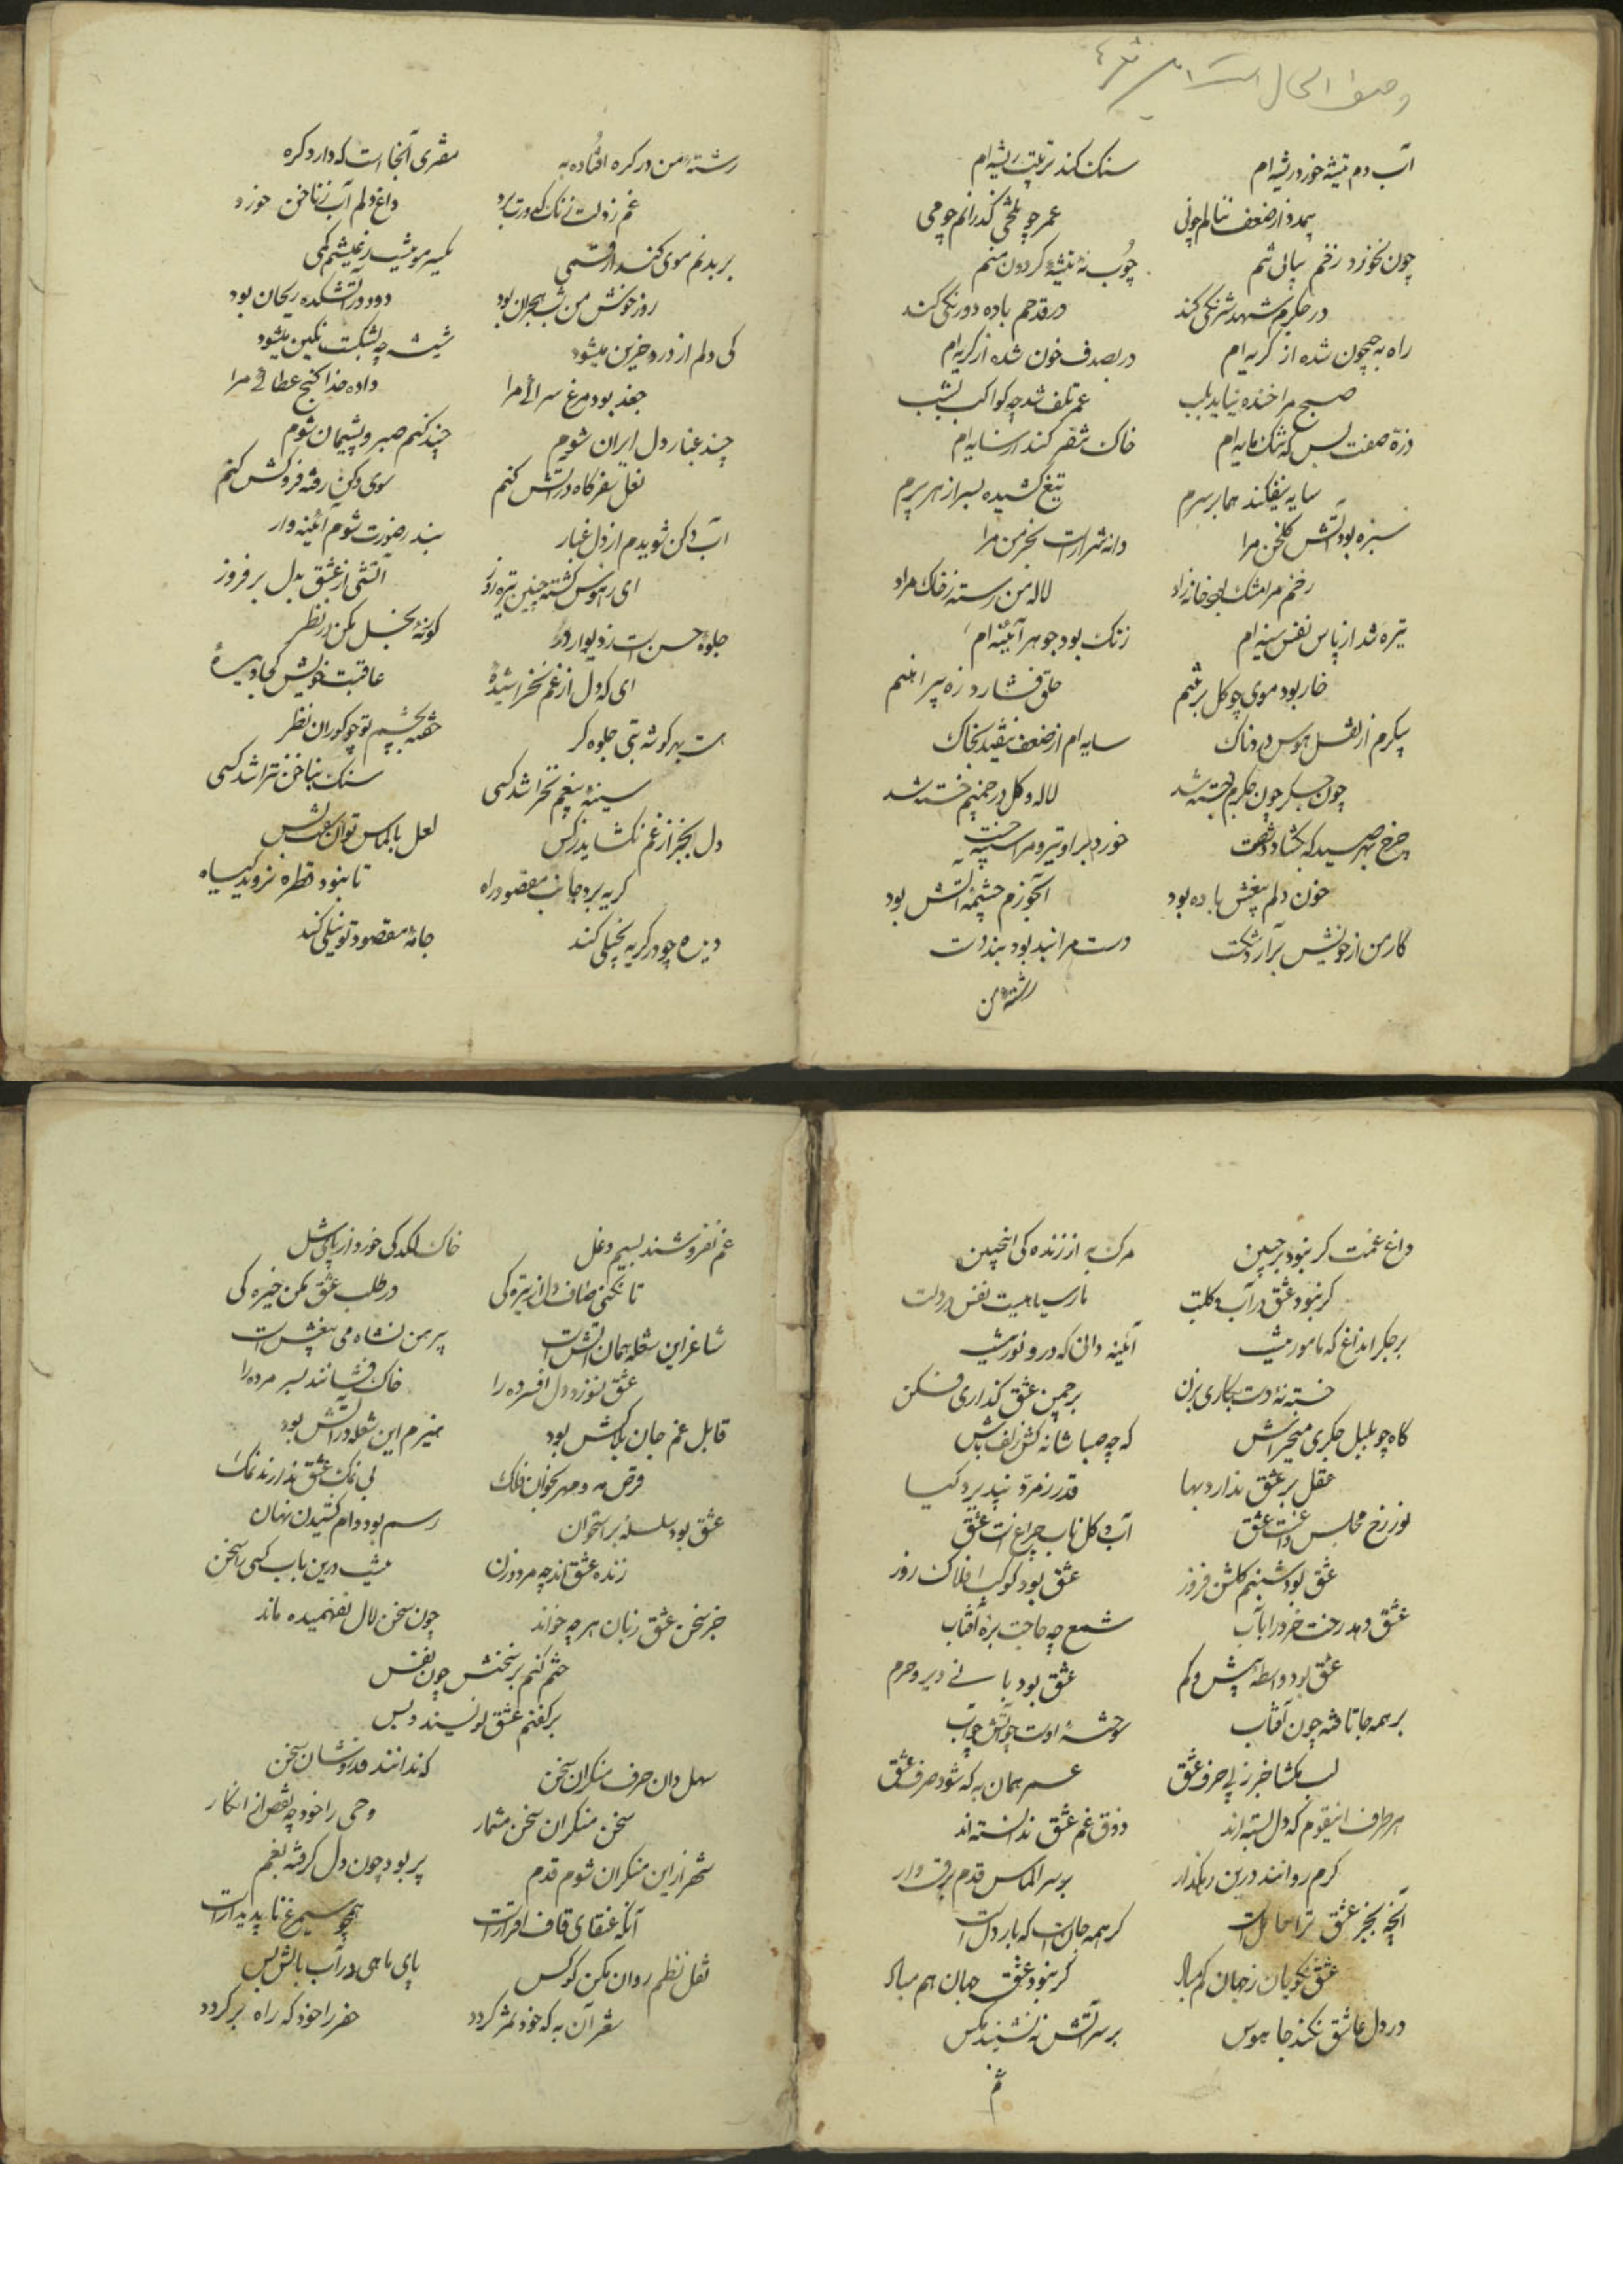 وصف الحال است
آب دم تیشه خورد ریشه‌ام سنک کند تربیت ریشه‌ام
همدم از ضعف ننالم چونی عمر چو تلخی گذرانم چو می
چون نخورد زخم پیاپی تنم چوب ته تیشه کردون منم
در جکرم شهد شرنکی کند در قدحم باده دو رنکی کند
راه به جیحون شده از کریه‌ام در بصدف خون شده از کریه‌ام
صبح مرا خنده نیاید بلب عمر تلف شد چو کواکب بشب
ذرّه صفت بس که تنک مایه‌ام خاک سفر کند از سایه‌ام
سایه نیفکند هما بر سرم تیغ کشیده بسر از هر پرم
سبزه بود آتش کلخن مرا دانه شرار است بخرمن مرا
زخم مرا مشک بود خانه زاد لاله من رسته ز خاک مراد
تیره شد از پاس نفس سینه‌ام زنک بود جوهر آئینه‌ام
خار بود موی چو کل بر تنم حلق فشارد زه پیراهنم
پیکرم از نقش هوس دردناک سایه‌ام از ضعف نیفتد بخاک
چون جکرم خسته شد لاله و کل در چمنم خسته شد
چرخ بهر صید که بکشاد شست خورد برابر تیر و مرا سینه خست
خون دلم بیغش باده بود آبخورم چشمه آتش بود
کار من از خویش برآرد شکست دست مرا نبد بود بند دست
رشته من
رشته من در کره افتاده به مقری آنجا است که دارد کره
غم ز دلت زنک کدورت برد داغ دلم آب ز ناخن خورد
بر بدنم موی کند ارقمی یکسر مو بیشی ز غمیشم کمی
روز خوش من شب هجران بود دود در آتشکده ریحان بود
کی دلم از درد حزین میشود شیشه چو بشکست نکین میشود
جغد بود مرغ سرائی مرا داده خدا کنج عطائی مرا
چند غبار دل ایران شوم چند کنم صبر و پشیمان شوم
نعل سفر کاه در آتش کنم سوی دکن رفته فروکش کنم
آب دکن شویدم از دل غبار بند رضورت شوم آئینه وار
ای ز هوس کشته چنین تیره روز آتشی از عشق بدل بر فروز
جلوه حسن است ز دیوار و در کوته بخیل مکن در نظر
ای که دل از غم نخراشیده عاقبت خویش کجا دیده
هست بهر کوشه بتی جلوه کر خفته بچشم تو چو کوران نظر
سینه بیغم نخراشد کسی سنک بناخن نتراشد کسی
دل بجز از غم نکشاید ز کس لعل بالماس توان سفت و بس
کریه برد جانب مقصود راه تا نبود قطره نروید کیاه
دیده چو در کریه بخیلی کند جامه مقصود تو نیلی کند
داغ غمت کر نبود بر جبین مرک به از زنده کی اینچنین
کر نبود عشق در آب و کلت مار سیاهیست نفس در دلت
بر جکر آن داغ که ناسور نیست آئینه دانی که درو نور نیست
خسته نه دست بکاری بزن بر چمن عشق کذاری فکن
کاه چو بلبل جکری میخراش که چو صبا شانه کش زلف باش
عقل بر عشق ندارد بها قدر زمرد نپذیرد کیا
نور رخ مجلس داغست عشق آب و کل ناب چراغ است عشق
عشق بود شبنم کلشن فروز عشق بود کوکب افلاک روز
عشق دهد رخت خرد را بآب شمع چه حاجت بره آفتاب
عشق بود واسطه بیش و کم عشق بود بانی دیر و حرم
بر همه جا تافته چون آفتاب سوخته اوست چو آتش چو آب
لب مکشا جز ز پی حرف عشق عمر همان به که شود صرف عشق
هر طرف اینقوم که دل بسته‌اند ذوق غم عشق ندانسته‌اند
کرم روانند درین رهکذار بر سر الماس قدم برق وار
آنچه بجز عشق ترا حاصل است کر همه جانست که بار دل است
عشق نکویان ز جهان کم مباد کر نبود عشق جهان هم مباد
در دل عاشق نکند جا هوس بر سر آتش ننشیند مکس
غم
غم نفروشند بسیم دغل خاک لکد کی خورد از پای شل
تا نکنی صاف دل از تیره کی در طلب عشق مکن خیره کی
شاعر این شعله همان آتش است پیرهن نشاه می بیغش است
عشق نوزد دل افسرده را خاک فشانند بسر مرده را
قابل غم جان بلاکش بود هیزم این شعله در آتش بود
قرص مه و مهر بخوان فلک بی نمک عشق ندارند نمک
عشق بود سلسله بر استخوان رسم بود دام کشیدن نهان
زنده عشق‌اند چه مرد و زن نیست درین باب کسی را سخن
جز سخن عشق زبان هر چه خواند چون سخن لال نفهمیده ماند
ختم کنم بر سخنش چون نفس
بر کفنم عشق نویسند و بس
سهل دان حرف منکران سخن که ندانند قدر و شان سخن
سخن منکران سخن مشمار وحی را خود چه نقص از انکار
شهر از این منکران شوم قدم پر بود چون دل کرفته بغم
آنکه عنقای قاف افرازست همچو سیمرغ ناپدیدار است
نقل نظم روان مکن کو کس پای ماهی در آب بالش بس
سفر آن به که خود بمر کردد خضر را خود که راه بر کردد